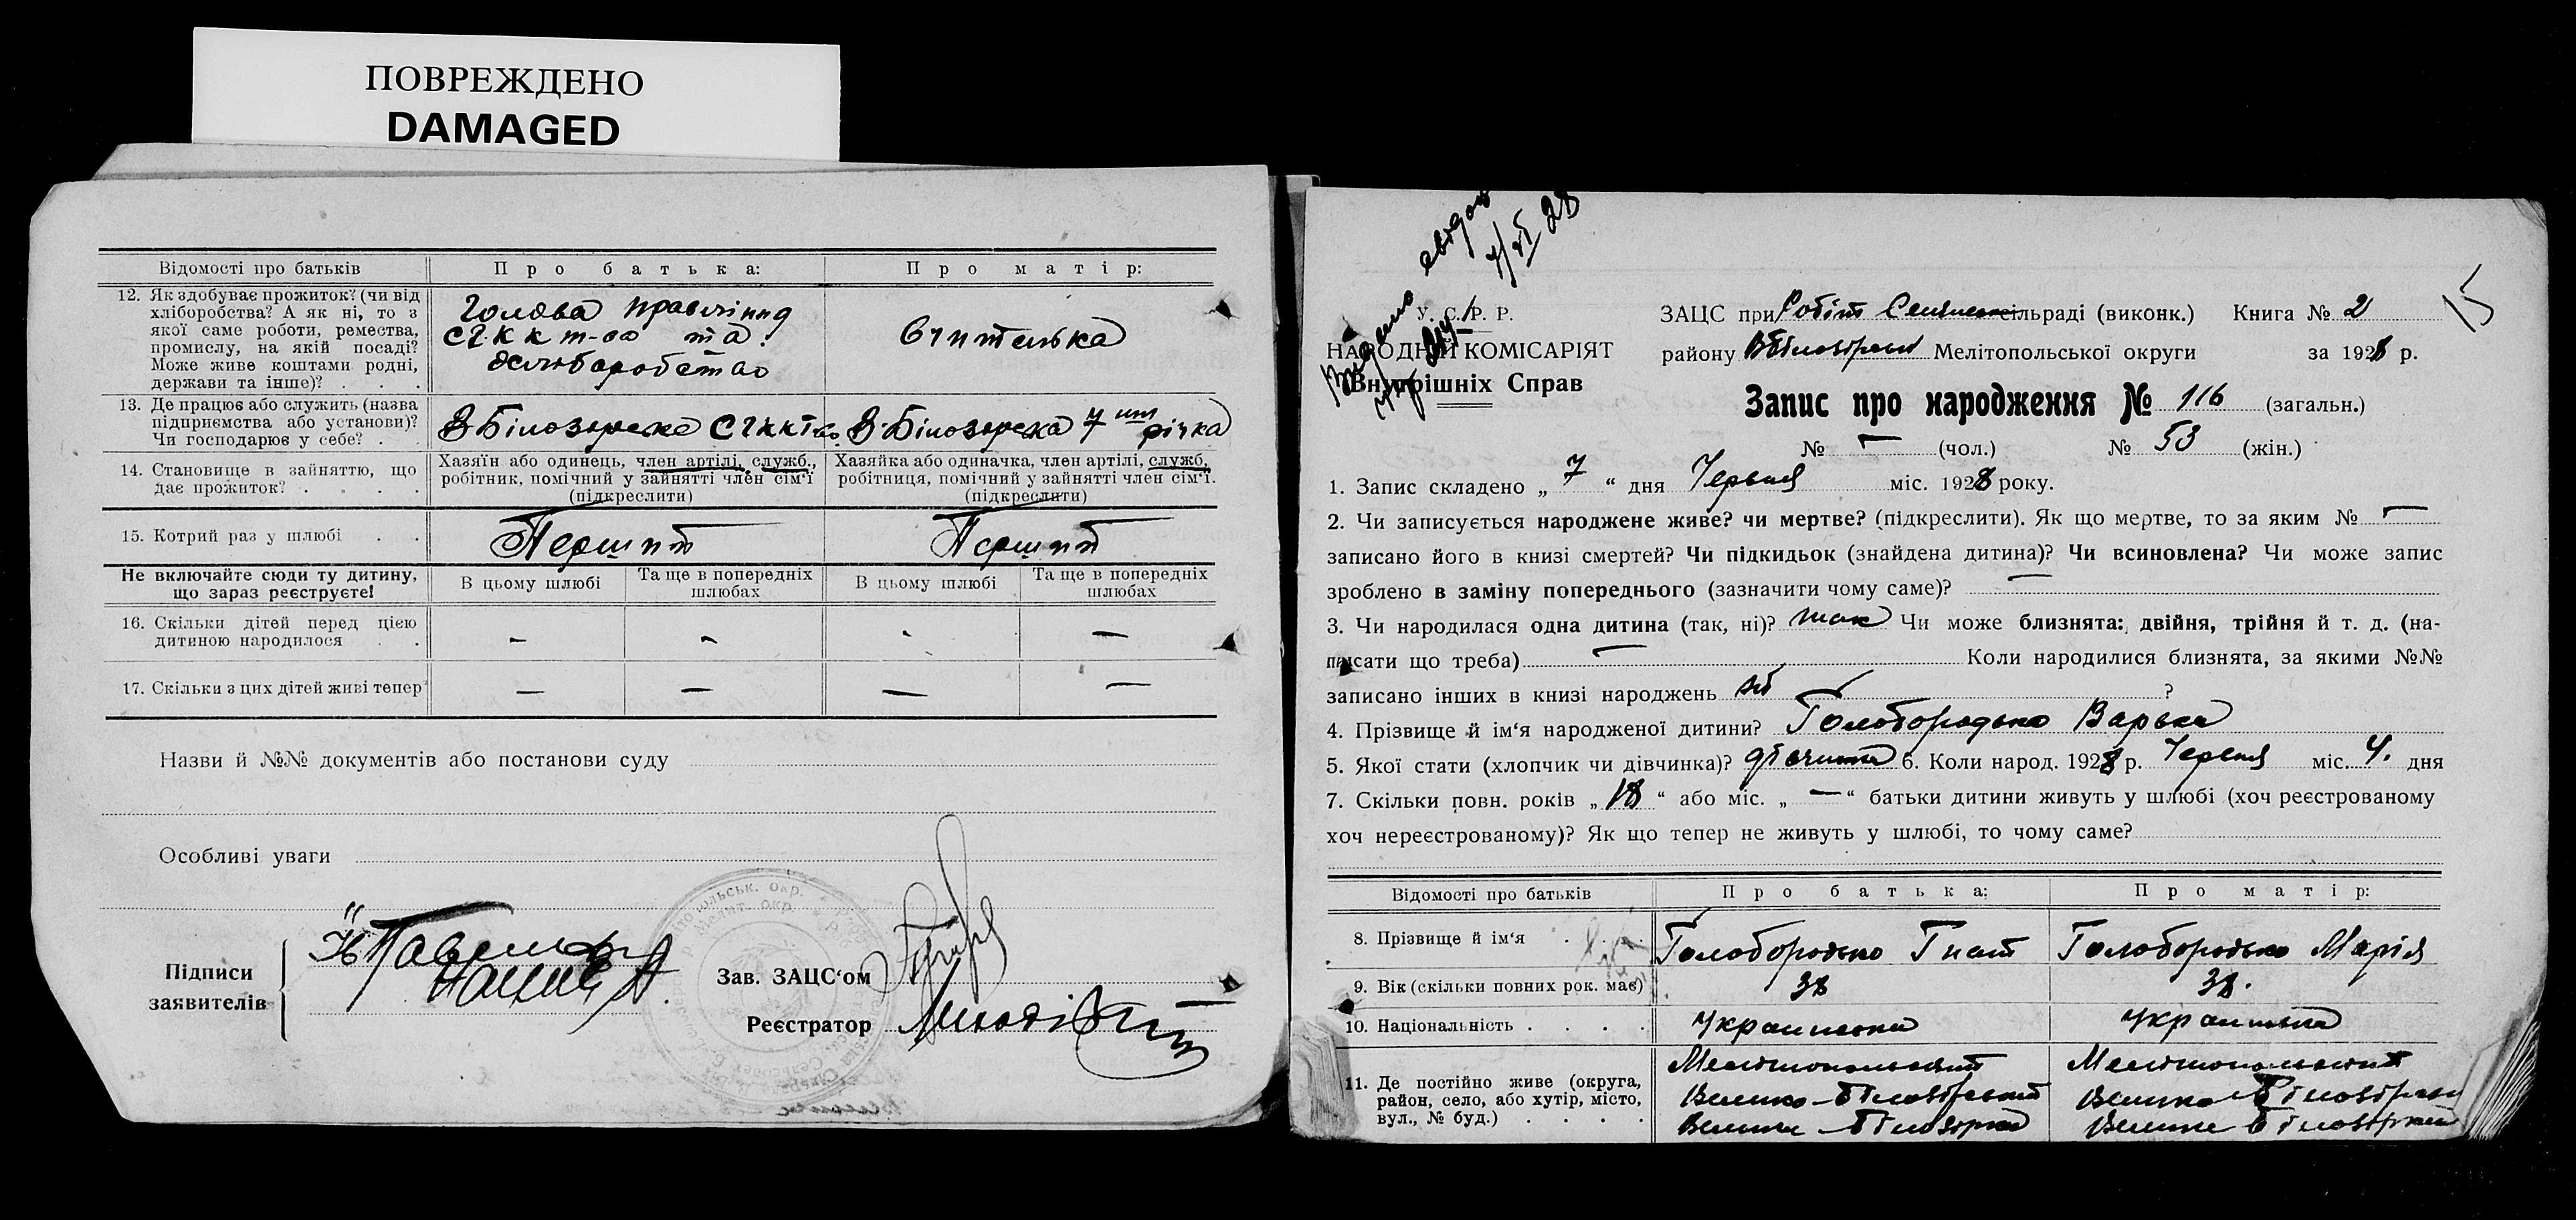 ПОВРЕЖДЕНО
DAMAGED
Відомості про батьків
Про батька:
Про матір:
12. Як здобуває прожиток? (чи від хліборобства? А як ні, то з якої саме роботи, ремества, промислу, на якій посаді? Може живе коштами родні, держави та інше)? . . .
Голова правління
СГККт-во та
хлібаробство
Вчителька
13. Де працює або служить (назва підприємства або установи)? Чи господарює у себе? . .
В-Білозерске СГККТво
В-Білозерска 7 річка
14. Становище в зайняттю, що дає прожиток? . . . .
Хазяїн або одинець, член артілі, служб., робітник, помічний у зайнятті член сім'ї (підкреслити)
Хазяйка або одиначка, член артілі, служб, робітниця, помічний у зайнятті член сім'ї. (підкреслити)
15. Котрий раз у шлюбі . .
Перший
Перший
Не включайте сюди ту дитину, що зараз реєструєте!
В цьому шлюбі
Та ще в попередніх шлюбах
В цьому шлюбі
Та ще в попередніх шлюбах
16. Скільки дітей перед цією дитиною народилося . .
— — - —
17. Скільки з цих дітей живі тепер
— — — —
Назви й №№ документів або постанови суду
Особливі уваги
Підписи заявителів
Зав. ЗАЦС'ом
Реєстратор
Видано
28
15
У. С. Р. Р.
НАРОДНІЙ КОМІСАРІЯТ
Внутрішніх Справ
ЗАЦС при сільраді (виконк.) Книга № 2
району ВБілозірськ Мелітопольської округи за 1928 р.
Запис про народження № 116 (загальн.)
№ — (чол.) № 53 (жін.)
1. Запис складено „ 7 “ дня Червня міс. 1928 року.
2. Чи записується народжене живе? чи мертве? (підкреслити). Як що мертве, то за яким № —
записано його в книзі смертей? Чи підкидьок (знайдена дитина)? Чи всиновлена? Чи може запис
зроблено в заміну попереднього (зазначити чому саме)? —
3. Чи народилася одна дитина (так, ні)? так Чи може близнята: двійня, трійня й т. д. (на-
писати що треба) — Коли народилися близнята, за якими №№
записано інших в книзі народжень ?
4. Прізвище й ім'я народженої дитини? Голобородько Варька
5. Якої стати (хлопчик чи дівчинка)? дівчинка 6. Коли народ. 1928 р. Червня міс. 4. дня
7. Скільки повн. років „ 18 “ або міс. „ — “ батьки дитини живуть у шлюбі (хоч реєстрованому
хоч нереєстрованому)? Як що тепер не живуть у шлюбі, то чому саме?
Відомості про батьків
Про батька:
Про матір:
8. Прізвище й ім'я . . . .
Голобородько Гнат
Голобородько Марія
9. Вік (скільки повних рок. має)
38
38.
10. Національність . . . .
Українська
Українька
11. Де постійно живе (округа, район, село, або хутір, місто, вул., № буд.) . . . .
Мелітопольский
Велико-Білозірский
Велика-Білозірка
Мелітопольский
Велико Білозірск
Велика Білозірка